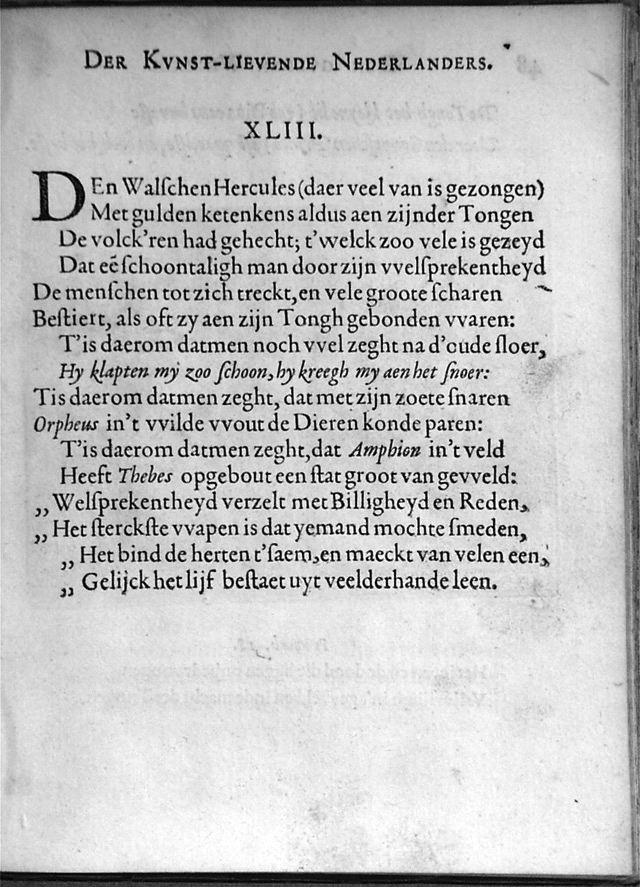 DER KVNST-LIEVENDE NEDERLANDERS.
XLIII.
DEn Walſchen Hercules (daer veel van is gezongen)
Met gulden ketenkens aldus aen zijnder Tongen
De volck'ren had gehecht; t'welck zoo vele is gezeyd
Dat eē ſchoontaligh man door zijn vvelſprekentheyd
De menſchen tot zich treckt, en vele groote ſcharen
Beſtiert, als oft zy aen zijn Tongh gebonden vvaren:
T'is daerom datmen noch vvel zeght na d'oude ſloer,
Hy klapten my zoo ſchoon, hy kreegh my aen het ſnoer:
Tis daerom datmen zeght, dat met zijn zoete ſnaren
Orpheus in't vvilde vvout de Dieren konde paren:
T'is daerom datmen zeght, dat Amphion in't veld
Heeft Thebes opgebout een ſtat groot van gevveld:
,, Welſprekentheyd verzelt met Billigheyd en Reden,
,, Het ſterckſte vvapen is dat yemand mochte ſmeden,
,, Het bind de herten t'ſaem, en maeckt van velen een,
,, Gelijck het lijf beſtaet uyt veelderhande leen.